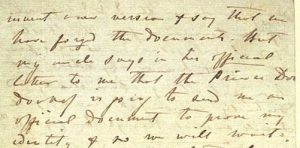 own version & say that we
have forged the documents. But
my uncle says in his official
letter to me that the Prince Dor
is going to send me an
official document to prove my
identity & so we will wait.